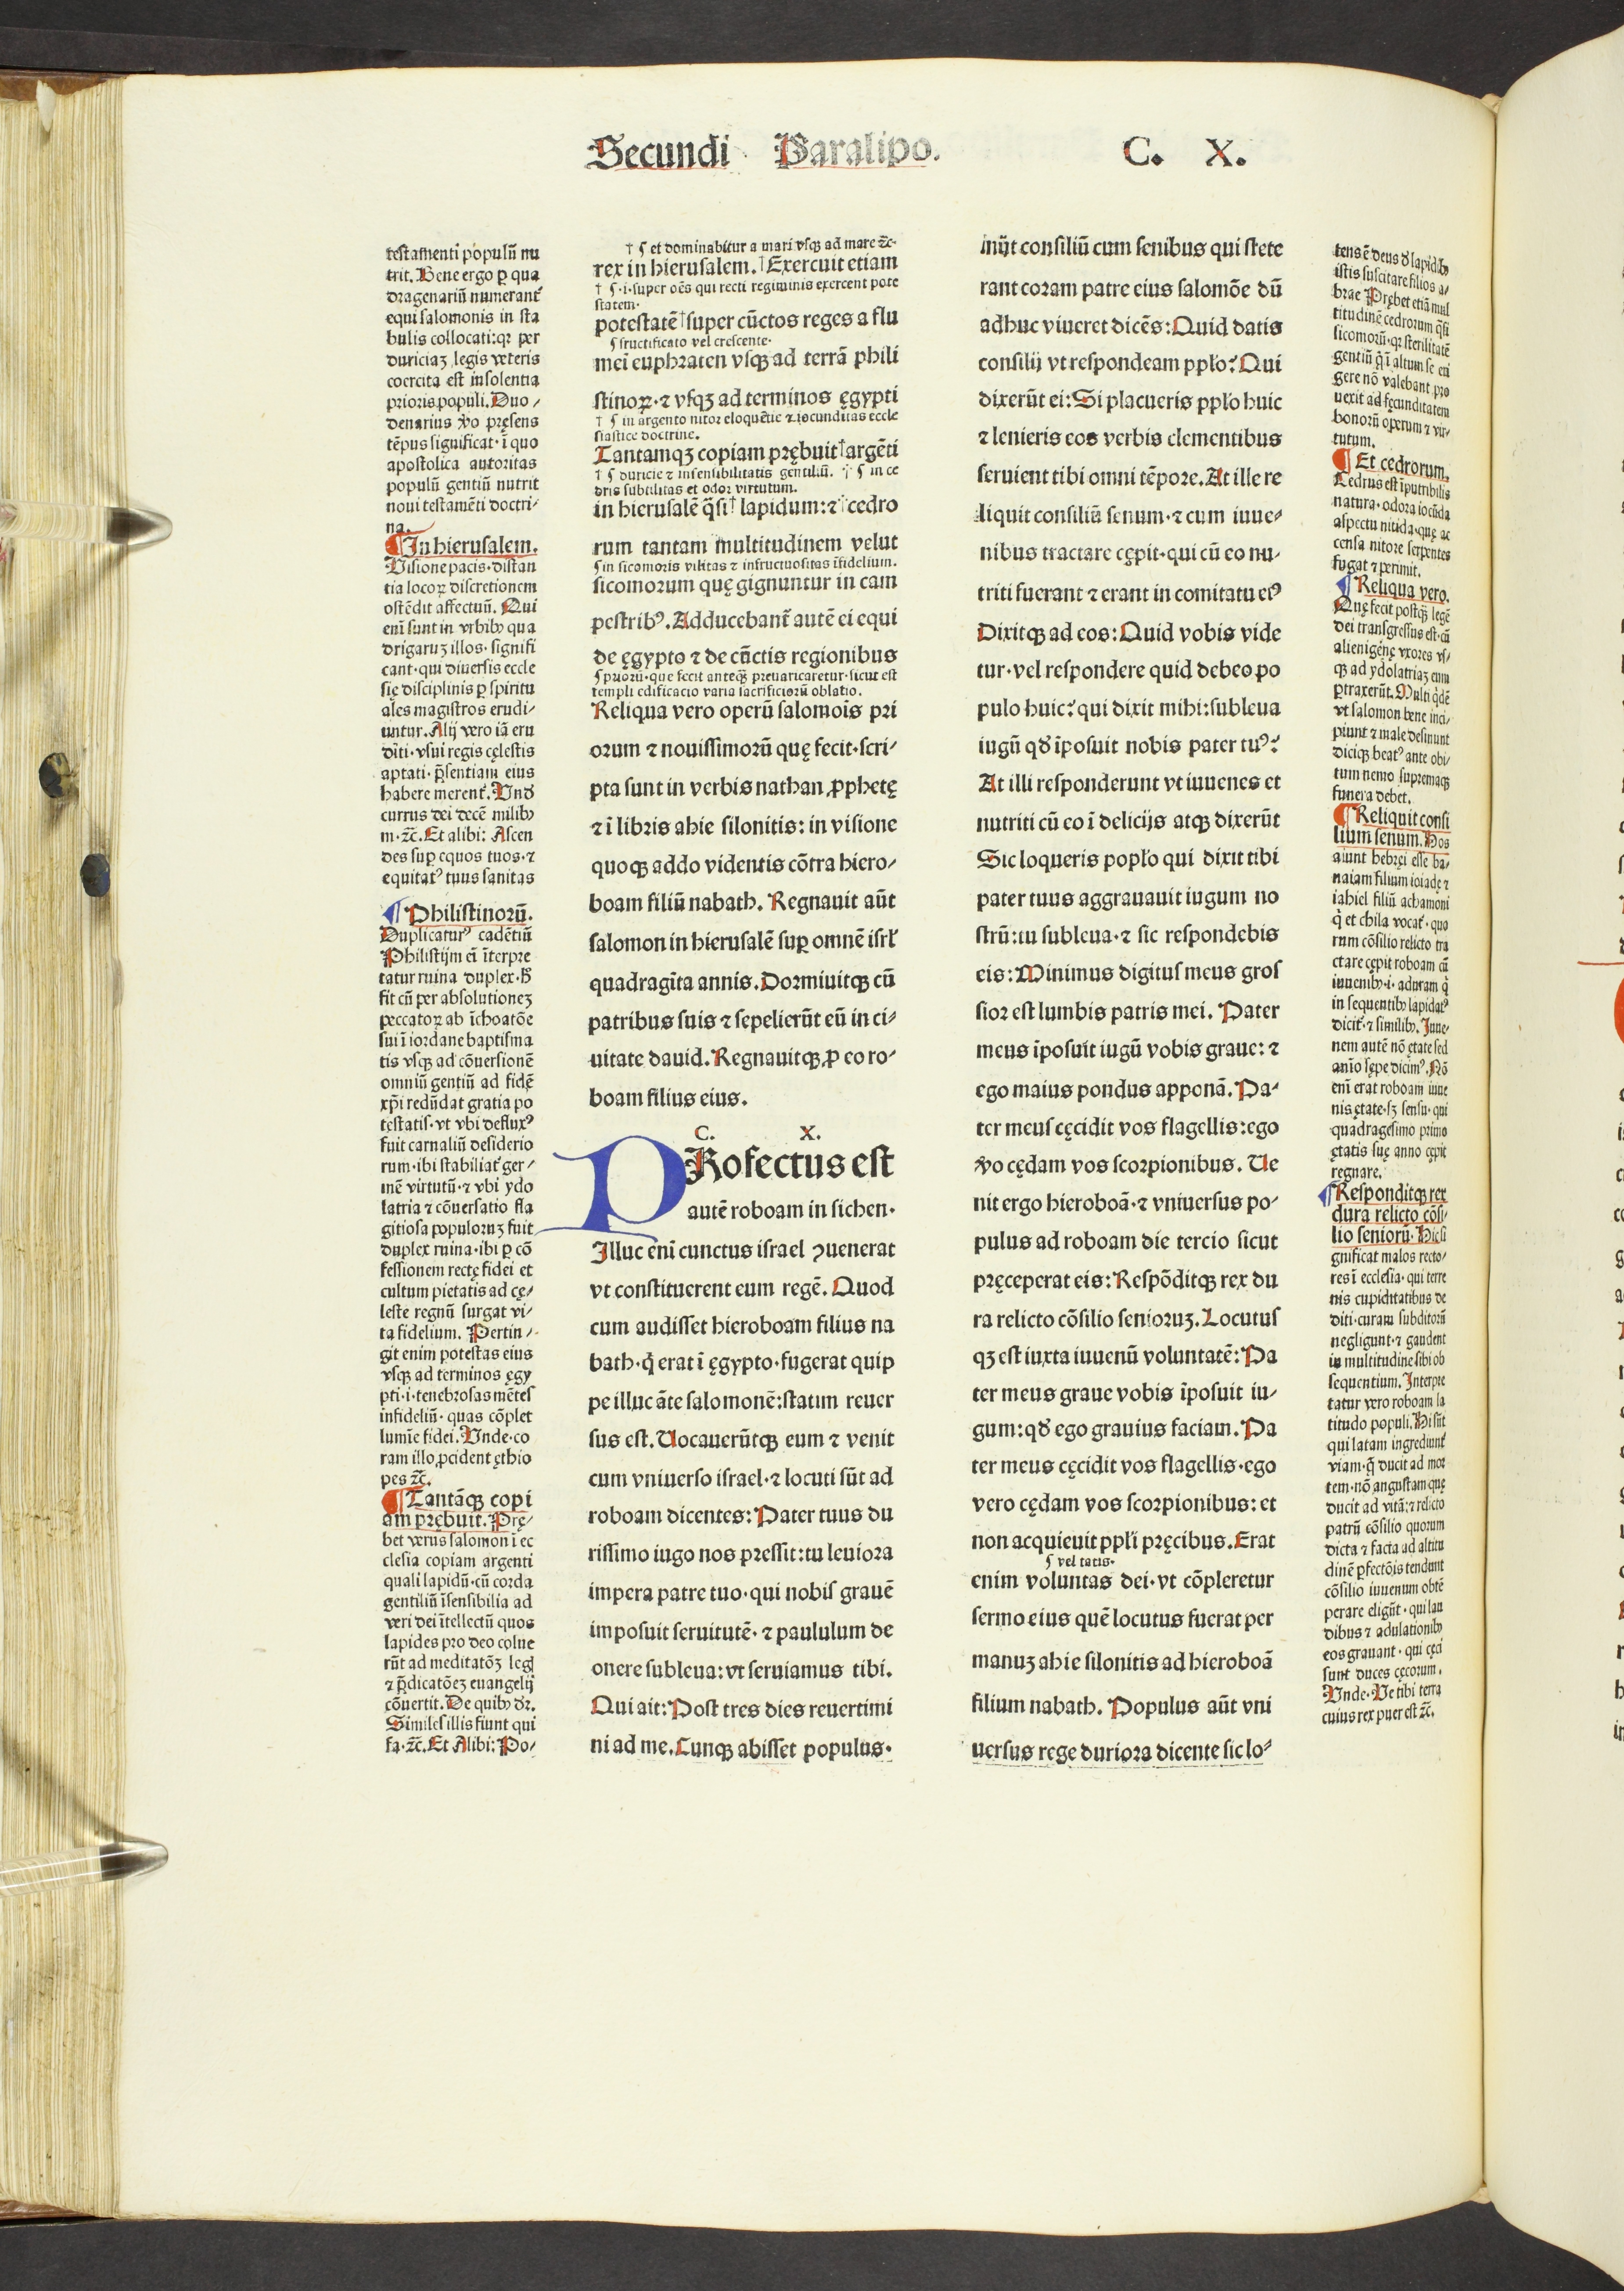 Secundi Paralipo. C. X.
testamenti populū nu
trit. Bene ergo ꝑ qua
dragenariū numerant᷑
equi salomonis in sta
bulis collocati: qꝛ per
duriciaꝫ legis veteris
coercita est insolentia
prioris populi. Duo /
denarius v̄o pręsens
tēpus significat · ī quo
apostolica autoritas
populū gentiū nutrit
noui testamēti doctri/
na.
¶ In hierusalem.
Visione pacis · distan
tia locoꝝ discretionem
ostēdit affectuū. Qui
enī sunt in vrbibꝰ qua
drigaruꝫ illos · signifi
cant · qui diuersis eccle
się disciplinis ꝑ spiritu
ales magistros erudi/
untur. Alij vero iā eru
diti · vsui regis cęlestis
aptati · p̄sentiam eius
habere merent᷑. Vnđ
currus dei decē milibꝰ
m · ⁊c̄. Et alibi: Ascen
des suꝑ equos tuos · ⁊
equitatꝰ tuus sanitas
¶ Philistinorū.
Duplicaturꝰ cadētiū
Philistijm eī īterpre
tatur ruina duplex · H̄
fit cū per absolutioneꝫ
peccatoꝝ ab īchoatōe
sui ī iordane baptisma
tis vsqꝫ ad cōuersionē
omniū gentiū ad fidē
xp̄i redūdat gratia po
testatis · vt vbi defluxꝰ
fuit carnaliū desiderio
rum · ibi stabiliat᷑ ger /
mē virtutū · ⁊ vbi ydo
latria ⁊ cōuersatio fla
gitiosa populoruꝫ fuit
duplex ruina · ibi ꝑ cō
fessionem rectę fidei et
cultum pietatis ad cę/
leste regnū surgat vi/
ta fidelium. Pertin /
git enim potestas eius
vsqꝫ ad terminos ęgy
pti · i · tenebrosas mētes
infideliū · quas cōplet
lumīe fidei. Vnde · co
ram illo ꝓcident ęthio
pes ⁊c̄.
¶ Tantāqꝫ copi
am prębuit. Prę/
bet verus salomon ī ec
clesia copiam argenti
quali lapidū · cū corda
gentiliū īsensibilia ad
veri dei ītellectū quos
lapides pro deo colue
rūt ad meditatōꝫ legis
⁊ p̄dicatōeꝫ euangelij
cōuertit. De quibꝰ dꝛ.
Similes illis fiunt qui
fa · ⁊c̄. Et Alibi: Po/
† ¶ et dominabitur a mari vsqꝫ ad mare ⁊c̄ ·
rex in hierusalem. † Exercuit etiam
† ¶ · i · super oēs qui recti regiminis exercent pote
statem ·
potestatē † super cūctos reges a flu
¶ fructificato vel crescente ·
mei euphraten vsqꝫ ad terrā phili
stinoꝝ · ⁊ vsqꝫ ad terminos ęgypti
† ¶ in argento nitor eloquētie ⁊ iocunditas eccle
siastice doctrine.
Tantamqꝫ copiam prębuit † argēti
† ¶ duricie ⁊ insensibilitatis gentiliū. † ¶ in ce
dris subtilitas et odor virtutum.
in hierusalē q̄si † lapidum: ⁊ † cedro
rum tantam multitudinem velut
¶ in sicomoris vilitas ⁊ infructuositas īfidelium.
sicomorum quę gignuntur in cam
pestribꝰ. Adducebant᷑ autē ei equi
de ęgypto ⁊ de cūctis regionibus
¶ priorū · que fecit anteqꝫ preuaricaretur · sicut est
templi edificacio varia sacrificiorū oblatio.
Reliqua vero operū salomōis pri
orum ⁊ nouissimorū quę fecit · scri/
pta sunt in verbis nathan ꝓphetę
⁊ ī libris ahie silonitis: in visione
quoqꝫ addo videntis cōtra hiero/
boam filiū nabath. Regnauit aūt
salomon in hierusalē suꝑ omnē isrł
quadragīta annis. Dormiuitqꝫ cū
patribus suis ⁊ sepelierūt eū in ci/
uitate dauid. Regnauitqꝫ ꝓ eo ro/
boam filius eius.
C. X.
PRofectus est
autē roboam in sichen ·
Illuc enī cunctus israel ꝯuenerat
vt constituerent eum regē. Quod
cum audisset hieroboam filius na
bath · q̇ erat ī ęgypto · fugerat quip
pe illuc āte salomonē: statim reuer
sus est. Uocauerūtqꝫ eum ⁊ venit
cum vniuerso israel · ⁊ locuti sūt ad
roboam dicentes: Pater tuus du
rissimo iugo nos pressit: tu leuiora
impera patre tuo · qui nobis grauē
imposuit seruitutē · ⁊ paululum de
onere subleua: vt seruiamus tibi.
Qui ait: Post tres dies reuertimi
ni ad me. Cunqꝫ abisset populus ·
inijt consiliū cum senibus qui stete
rant coram patre eius salomōe dū
adhuc viueret dicēs: Quid datis
consilij vt respondeam ppło? Qui
dixerūt ei: Si placueris ppło huic
⁊ lenieris eos verbis clementibus
seruient tibi omni tēpore. At ille re
liquit consiliū senum · ⁊ cum iuue/
nibus tractare cępit · qui cū eo nu/
triti fuerant ⁊ erant in comitatu eiꝰ
Dixitqꝫ ad eos: Quid vobis vide
tur · vel respondere quid debeo po
pulo huic? qui dixit mihi: subleua
iugū qđ īposuit nobis pater tuꝰ?
At illi responderunt vt iuuenes et
nutriti cū eo ī delicijs atqꝫ dixerūt
Sic loqueris popło qui dixit tibi
pater tuus aggrauauit iugum no
strū: tu subleua · ⁊ sic respondebis
eis: Minimus digitus meus gros
sior est lumbis patris mei. Pater
meus īposuit iugū vobis graue: ⁊
ego maius pondus apponā. Pa/
ter meus cęcidit vos flagellis: ego
v̄o cędam vos scorpionibus. Ue
nit ergo hieroboā · ⁊ vniuersus po/
pulus ad roboam die tercio sicut
pręceperat eis: Respōditqꝫ rex du
ra relicto cōsilio senioruꝫ. Locutus
qꝫ est iuxta iuuenū voluntatē: Pa
ter meus graue vobis īposuit iu/
gum: qđ ego grauius faciam. Pa
ter meus cęcidit vos flagellis · ego
vero cędam vos scorpionibus: et
non acquieuit ppłi pręcibus. Erat
¶ vel tatis ·
enim voluntas dei · vt cōpleretur
sermo eius quē locutus fuerat per
manuꝫ ahie silonitis ad hieroboā
filium nabath. Populus aūt vni
uersus rege duriora dicente sic lo/
tens ē deus đ lapidibꝰ
istis suscitare filios a/
brae Prębet etiā mul
titudinē cedrorum q̄si
sicomorū · qꝛ sterilitatē
gentiū q̄ ī altum se eri
gere nō valebant pro
uexit ad fęcunditatem
bonorū operum ⁊ vir/
tutum.
¶ Et cedrorum.
Cedrus est īputribilis
natura · odora iocūda
aspectu nitida · quę ac
censa nitore serpentes
fugat ⁊ perimit.
¶ Reliqua vero.
Quę fecit postqꝫ legē
dei transgressus est · cū
alienigenę vxores vs/
qꝫ ad ydolatriaꝫ eum
ꝑtraxerūt. Multi q̇dē
vt salomon bene inci/
piunt ⁊ male desinunt
dicique beatꝰ ante obi/
tum nemo supremaqꝫ
funera debet.
¶ Reliquit consi
lium senum. Hos
aiunt hebręi esse ba/
naiam filium ioiadę ⁊
iahiel filiū achamoni
q̇ et chila vocat᷑ · quo
rum cōsilio relicto tra
ctare cępit roboam cū
iuuenibꝰ · i · aduram q̇
in sequentibꝰ lapidatꝰ
dicit᷑ · ⁊ similibꝰ. Iuue/
nem autē nō ętate sed
anīo sępe dicimꝰ. Nō
enī erat roboam iuue
nis ętate · sꝫ sensu · qui
quadragesimo primo
ętatis suę anno cępit
regnare.
¶ Responditqꝫ rex
dura relicto cōsi/
lio seniorū. Hic si
gnificat malos recto/
res ī ecclesia · qui terre
nis cupiditatibus de
diti · curam subditorū
negligunt · ⁊ gaudent
in multitudine sibi ob
sequentium. Interpre
tatur vero roboam la
titudo populi. Hi sūt
qui latam ingrediunt᷑
viam · q̄ ducit ad mor
tem · nō angustam quę
ducit ad vitā: ⁊ relicto
patrū cōsilio quorum
dicta ⁊ facta ad altitu
dinē ꝑfectōis tendunt
cōsilio iuuenum obtē
perare eligūt · qui lau
dibus ⁊ adulationibꝰ
eos grauant · qui cęci
sunt duces cęcorum.
Vnde · Ve tibi terra
cuius rex puer est ⁊c̄.